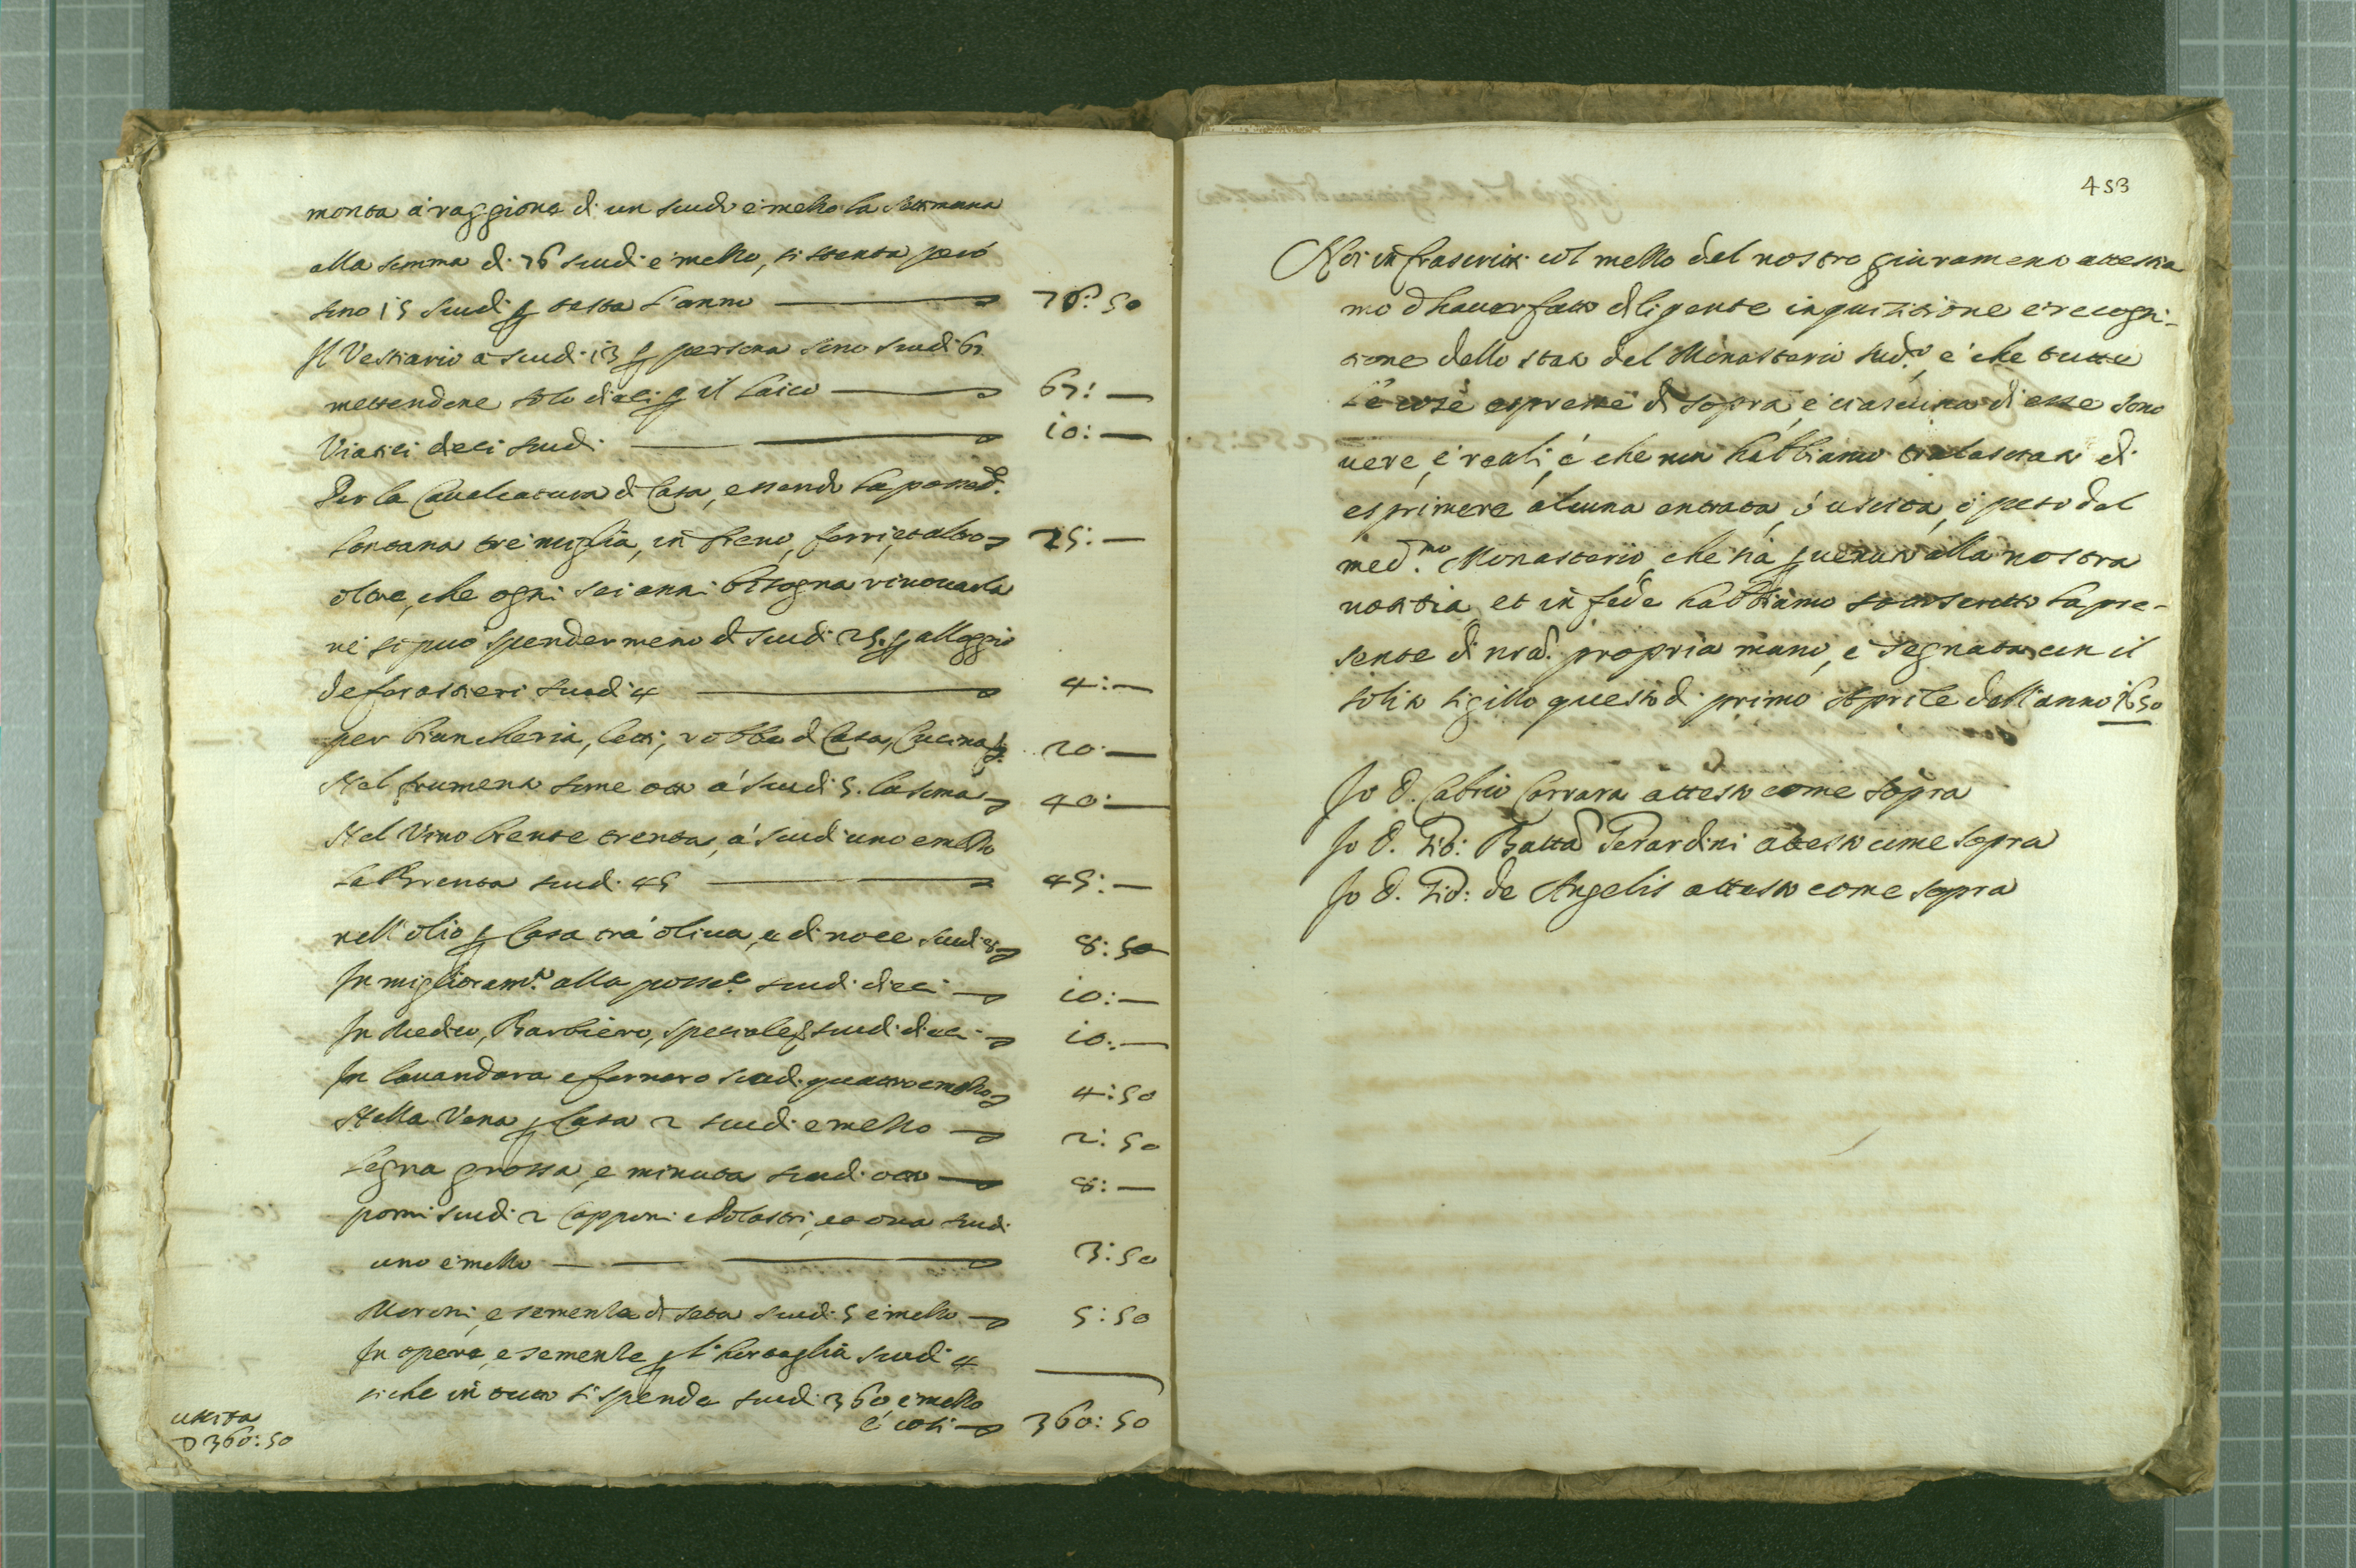 monta à raggione di un scudo e mezzo la settimana
alla somma di 76 scudi e mezzo, si stenta però
sono 15 scudi p testa l'anno 76: 50
Il Vestiario a scudi 13 p persona sono scudi 62
mettendone solo dieci p il laico 62: —
Viatici dieci scudi 10: —
Per la Cavalcatura di Casa, essendo la possed.
lontana tre miglia, in fieno, ferri, et altro 25: —
oltre, che ogni sei anni bisogna rinovarla
ne si può spender meno di scudi 25. p alloggio
de forastieri scudi 4 4: —
per biancheria, letti, robba di Casa, Cucina 20: —
Nel frumento some otto a scudi 5. la soma 40: —
Nel Vino brente trenta, a scudi uno e mezzo
la Brenta scudi 45 45: —
nell'olio p Casa tra oliva, e di noce scudi 8 8: 50
In miglioram.to alla poss.e scudi dieci 10: —
In Medico, Barbiero, speciale scudi dieci 10: —
In lavandara e fornaro scudi quattro e mezzo 4: 50
Nella Vena p Casa 2 scudi e mezzo 2: 50
Legna grossa, e minuta scudi otto 8: —
pomi scudi 2 Capponi e Polastri, et ova scudi
uno e mezzo 3: 50
Moroni, e semenza di seta scudi 5 e mezzo 5: 50
In opere, e semente p l'hortaglia scudi 4
si che in tutto si spende scudi 360, e mezzo
e così 360: 50
uscita
360: 50
453
Noi infrascritti col mezzo del nostro giuramento attestia
mo d'haver fatto diligente inquisitione e recogni-
tione dello stato del Monasterio sud.o, e che tutte
le cose espresse di sopra, e ciascuna di esse sono
vere, e reali, e che non habbiamo tralasciato di
esprimere alcuna entrata, ò uscita, ò peso del
med.mo Monasterio che sia p venuta alla nostra
notitia, et in fede habbiamo sottoscritto la pre-
sente di nra. propria mano, e segnata con il
solito sigillo questo dì primo Aprile dell'anno 1650
Io D. Cabrio Carrara attesto come sopra
Io D. Gio: Batta Gerardini attesto come sopra
Io D. Gio: de Angelis attesto come sopra